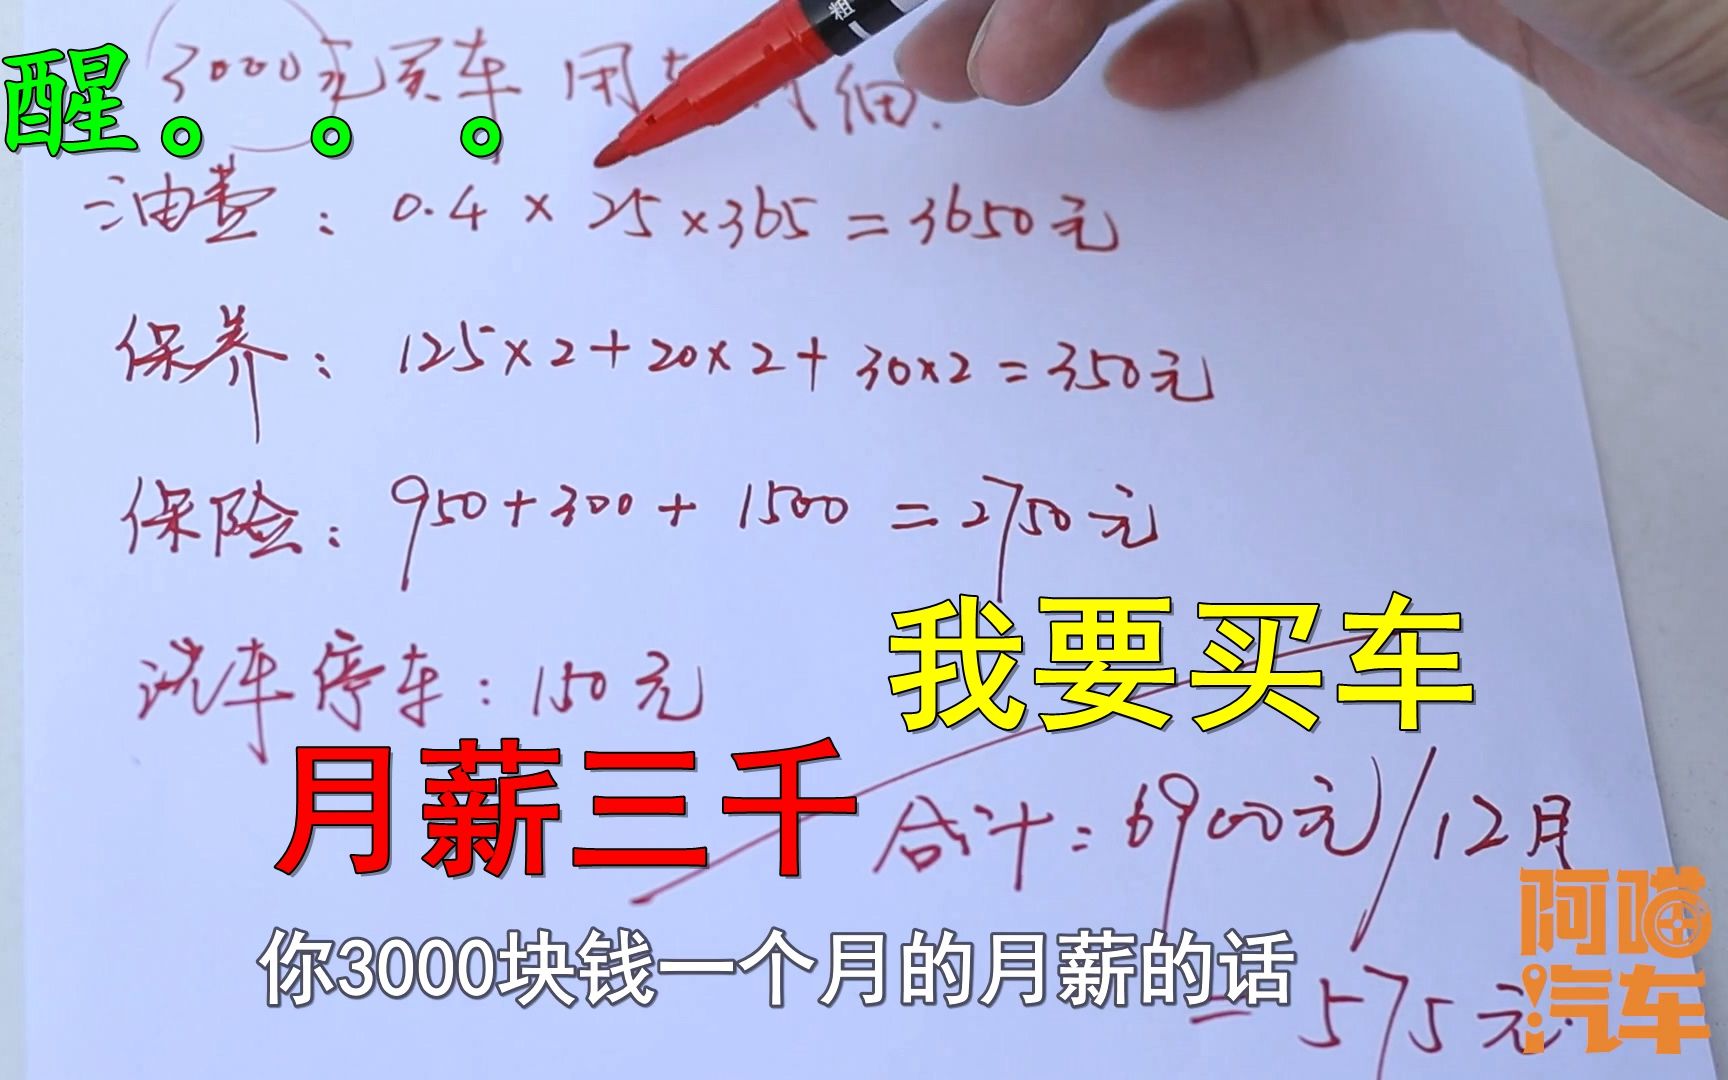 醒。。。
3000元买车 用 细.
油费: 0.4 × 25 × 365 = 3650元
保养: 125×2+20×2+30×2=350元
保险: 950+300+1500=2750元
洗车停车: 150元
我要买车
月薪三千
合计: 6900元/12月
= 575元.
你3000块钱一个月的月薪的话
阿喵汽车
粗